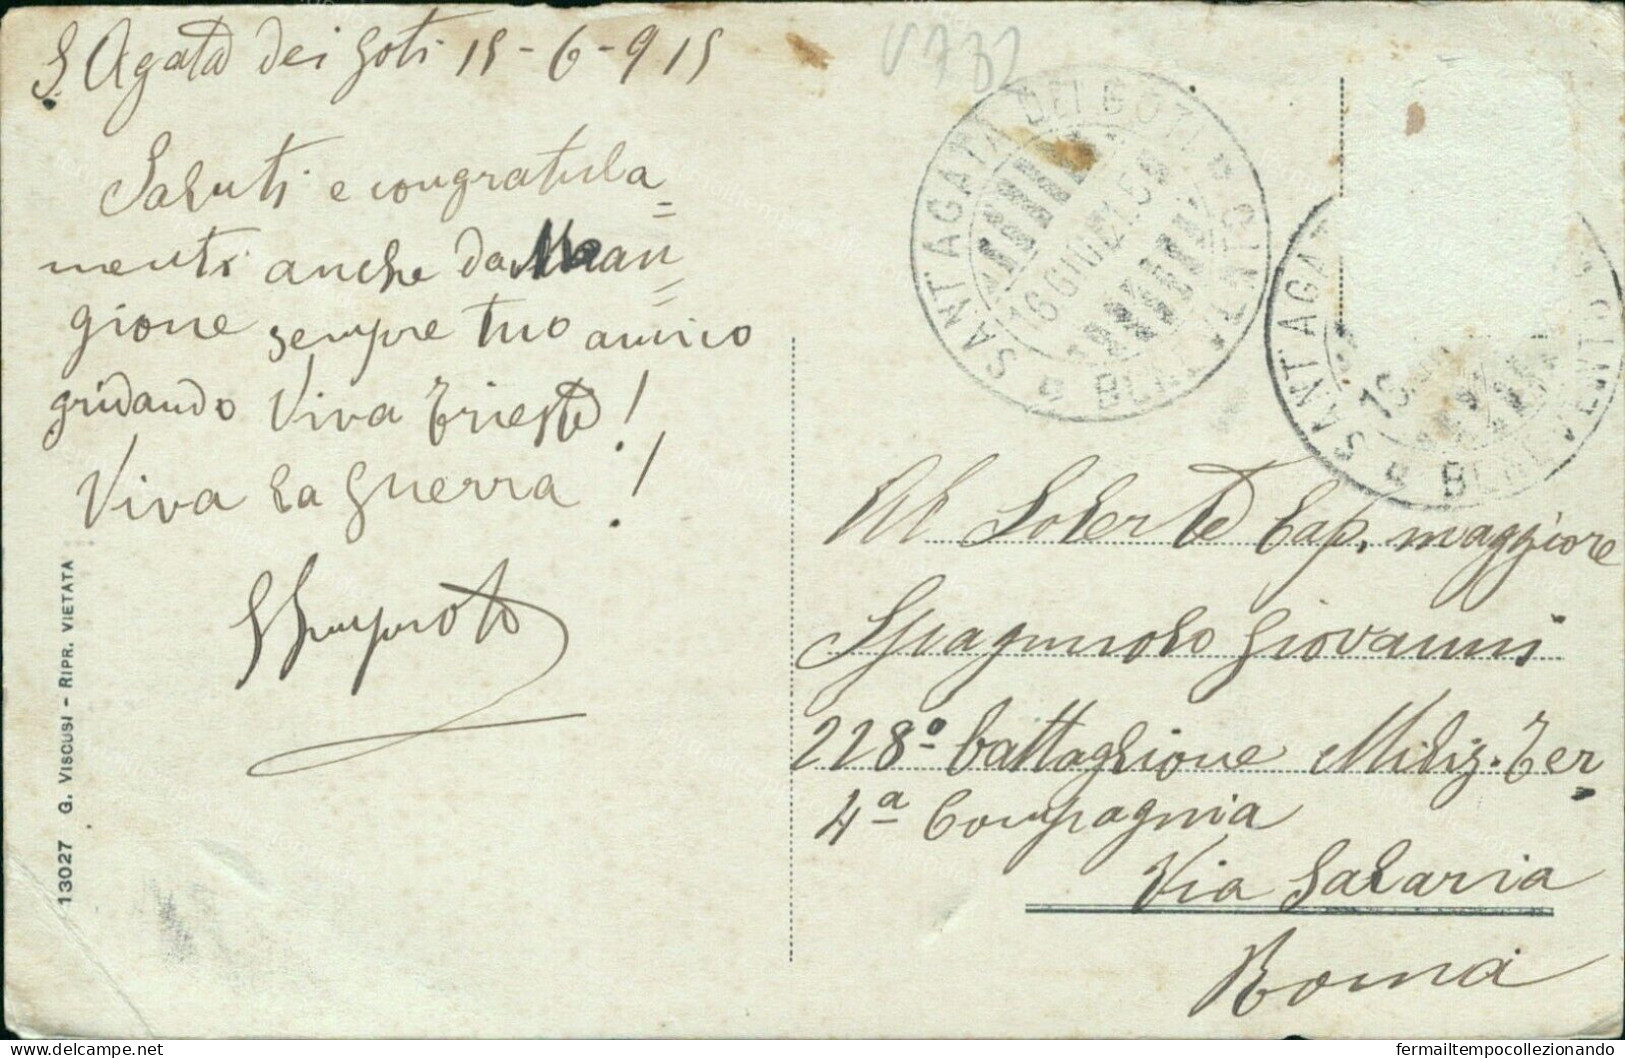 S. Agata dei Goti 15-6-915
Saluti e congratula=
menti anche da Man=
gione sempre tuo amico
gridando Viva Trieste!
Viva la guerra!
13027 G. VISCUSI - RIPR. VIETATA
SANT'AGATA DEI GOTI
BENEVENTO
16 GIU
SANT'AGAT
BENEVENTO
Al Solerte Cap. maggiore
Spagnuolo Giovanni
228º battaglione Miliz. Ter
4ª Compagnia
Via Salaria
Roma
the-memb
fermailtempocollezionando